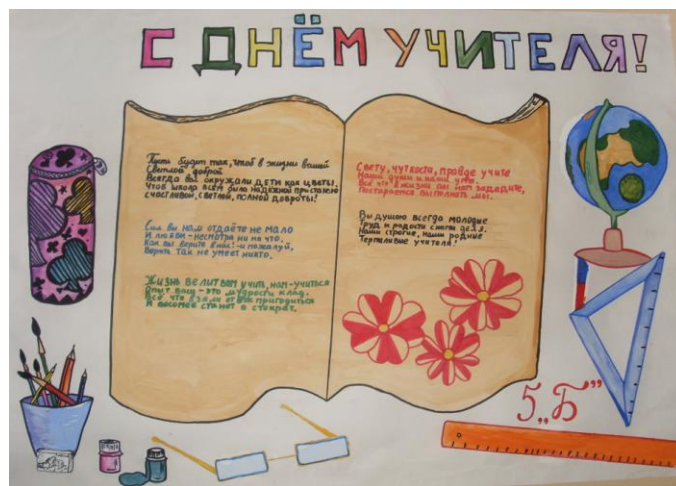 С ДНЁМ УЧИТЕЛЯ!
Пусть будет так, чтоб в жизни вашей
Светлой доброй
Всегда вас окружали ДЕТИ как цветы.
Чтоб школа всем была надёжной пристанью
счастливой, светлой, полной доброты!
Сил вы нам отдаёте не мало
И любви - несмотря ни на что.
Как вы верите в нас! - и пожалуй,
Верить так не умеет никто.
Жизнь велит вам учить, нам - учиться
Опыт ваш - это мудрости клад.
Всё что взяли от вас пригодиться
И весомее станет в стократ.
Свету, чуткости, правде учите
Наши души и наши умы.
Всё что в жизни вы нам зададите,
Постараемся выполнить мы.
Вы душою всегда молодые
Труд и радости с нами деля.
Наши строгие, наши родные
Терпеливые учителя!
5 „Б”